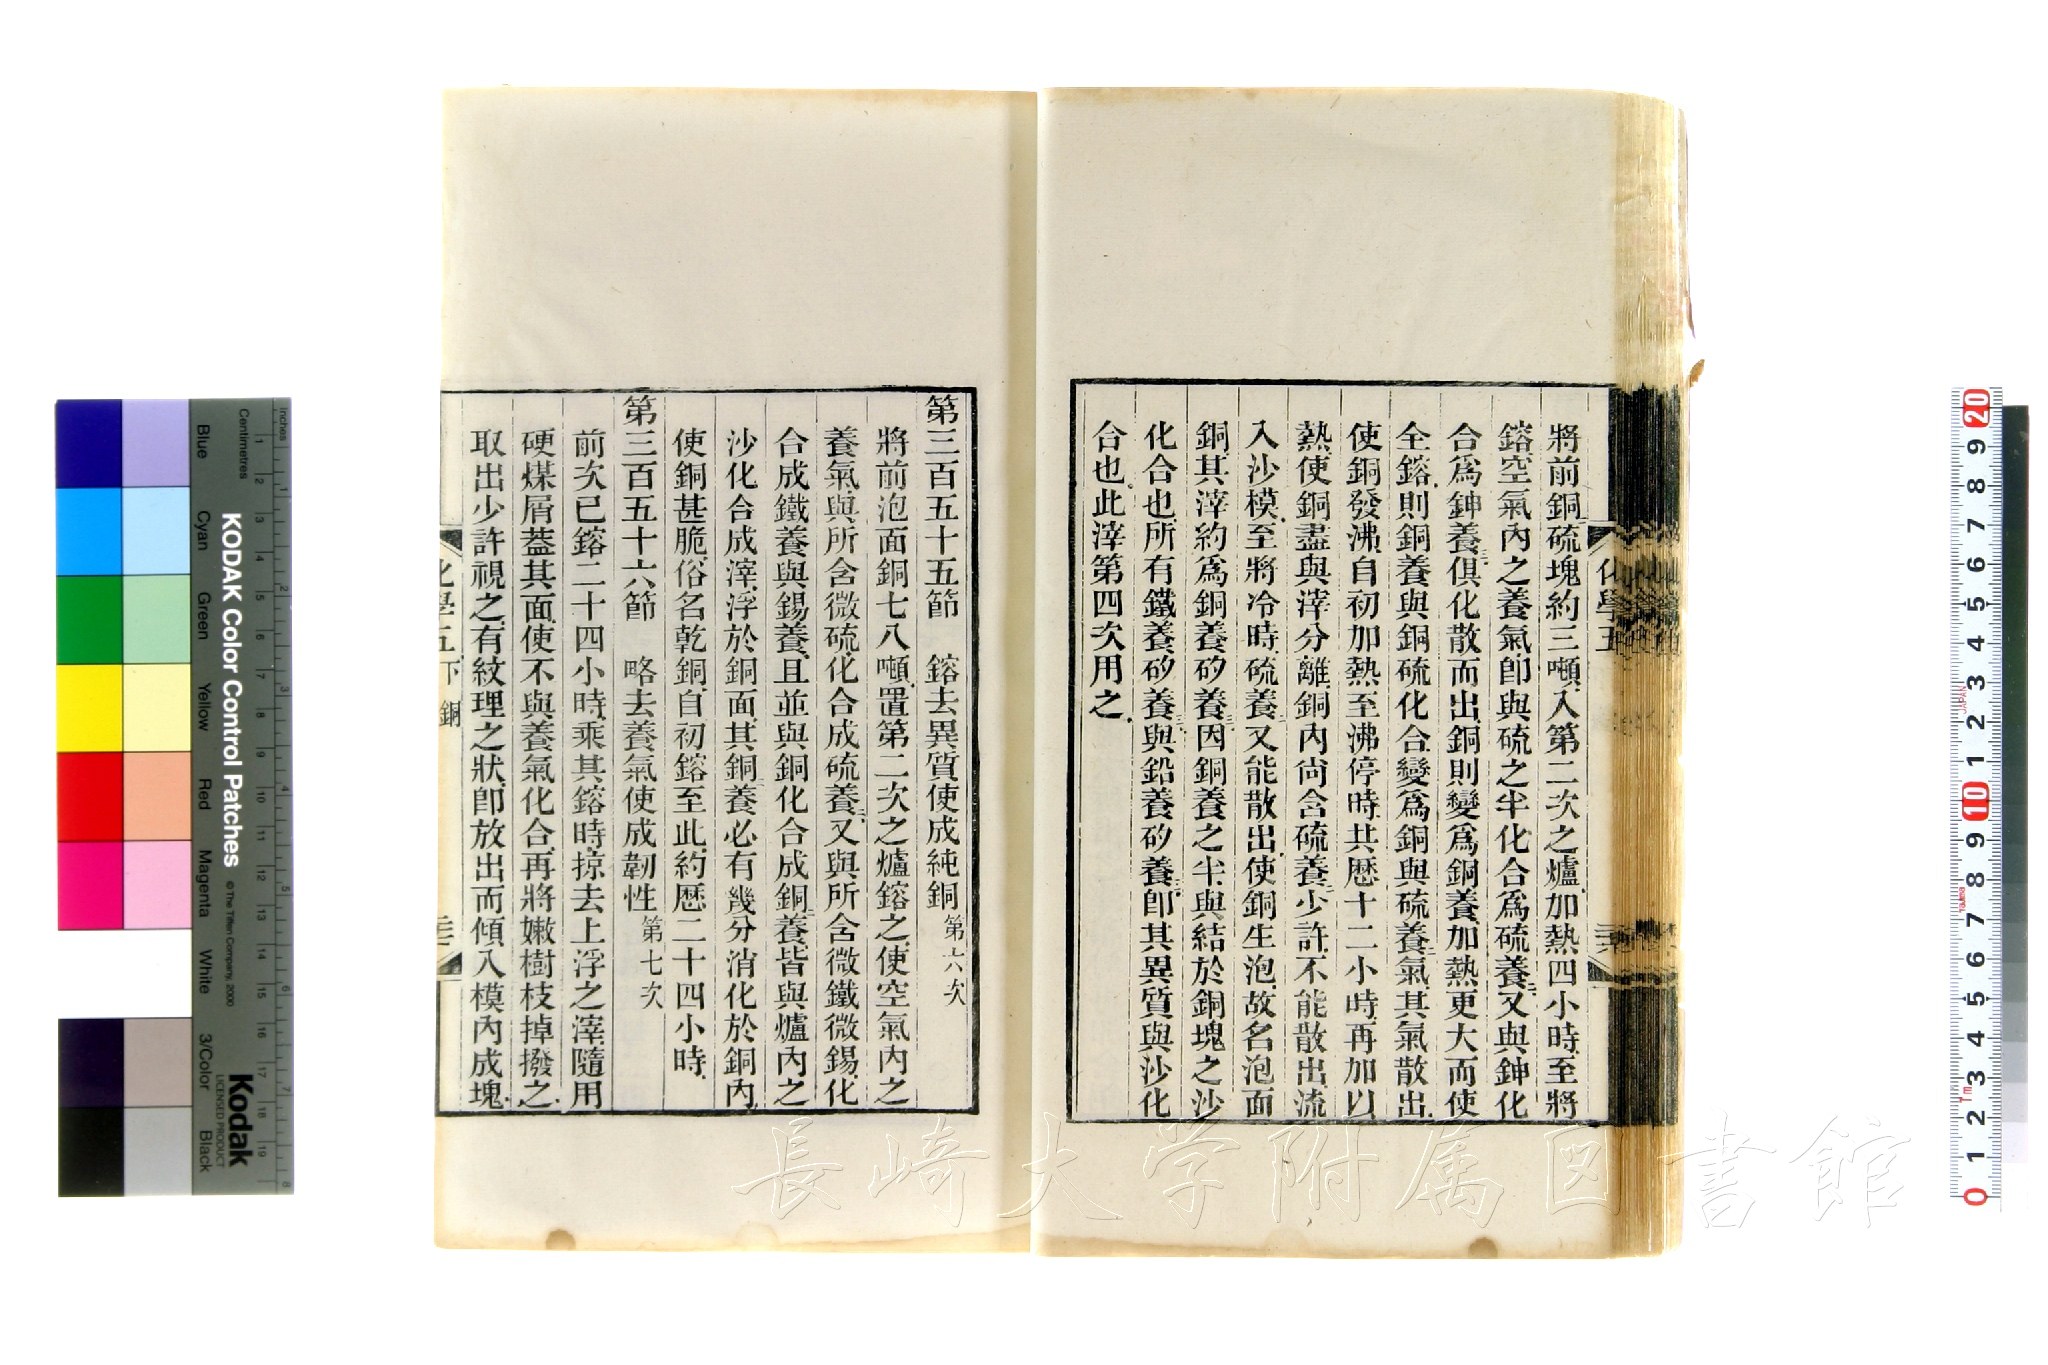 將前銅硫塊約三噸入第二次之爐加熱四小時至將
鎔空氣內之養氣卽與硫之半化合爲硫養二又與鉮化
合爲鉮養三俱化散而出銅則變爲銅養加熱更大而使
全鎔則銅養與銅硫化合變爲銅與硫養二氣其氣散出
使銅發沸自初加熱至沸停時共歷十二小時再加以
熱使銅盡與滓分離銅內尙含硫養二少許不能散出流
入沙模至將冷時硫養二又能散出使銅生泡故名泡面
銅其滓約爲銅養矽養三因銅養之半與結於銅塊之沙
化合也所有鐵養矽養三與鉛養矽養三卽其異質與沙化
合也此滓第四次用之
化學五
第三百五十五節　鎔去異質使成純銅第六次
將前泡面銅七八噸置第二次之爐鎔之使空氣內之
養氣與所含微硫化合成硫養二又與所含微鐵微錫化
合成鐵養與錫養且並與銅化合成銅二養皆與爐內之
沙化合成滓浮於銅面其銅二養必有幾分消化於銅內
使銅甚脆俗名乾銅自初鎔至此約歷二十四小時
第三百五十六節　略去養氣使成韌性第七次
前次已鎔二十四小時乘其鎔時掠去上浮之滓隨用
硬煤屑葢其面使不與養氣化合再將嫩樹枝掉撥之
取出少許視之有紋理之狀卽放出而傾入模內成塊
化學五下 銅
KODAK Color Control Patches
© The Tiffen Company, 2000
Kodak
LICENSED PRODUCT
Inches
Centimetres
Blue
Cyan
Green
Yellow
Red
Magenta
White
3/Color
Black
長崎大学附属図書館
JAPAN